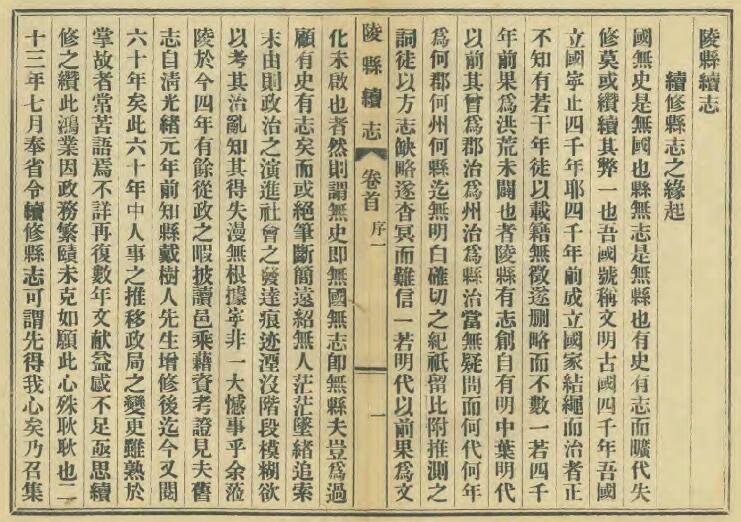 陵縣續志
續修縣志之緣起
國無史是無國也縣無志是無縣也有史有志而曠代失
修莫或纘續其弊一也吾國號稱文明古國四千年吾國
立國寧止四千年耶四千年前成立國家結繩而治者正
不知有若干年徒以載籍無徵遂刪略而不數一若四千
年前果爲洪荒未闢也者陵縣有志創自有明中葉明代
以前其曾爲郡治爲州治爲縣治當無疑問而何代何年
爲何郡何州何縣迄無明白確切之紀祇留比附推測之
詞徒以方志缺略遂杳冥而難信一若明代以前果爲文
陵縣續志
卷首
序一
一
化未啟也者然則謂無史即無國無志即無縣夫豈爲過
顧有史有志矣而或絕筆斷簡遠紹無人茫茫墜緒追索
末由則政治之演進社會之發達痕迹湮沒階段模糊欲
以考其治亂知其得失漫無根據寧非一大憾事乎余蒞
陵於今四年有餘從政之暇披讀邑乘藉資考證見夫舊
志自清光緒元年前知縣戴樹人先生增修後迄今又閱
六十年矣此六十年中人事之推移政局之變更雖熟於
掌故者常苦語焉不詳再復數年文献益感不足亟思續
修之纘此鴻業因政務繁賾未克如願此心殊耿耿也二
十三年七月奉省令續修縣志可謂先得我心矣乃召集